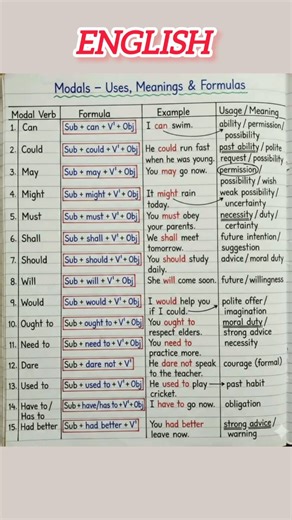 ENGLISH
Modals – Uses, Meanings & Formulas
Modal Verb Formula Example Usage / Meaning
1. Can Sub + can + V¹ + Obj I can swim. ability / permission / possibility
2. Could Sub + could + V¹ + Obj He could run fast when he was young. past ability / polite request / possibility
3. May Sub + may + V¹ + Obj You may go now. (permission) / possibility / wish
4. Might Sub + might + V¹ + Obj It might rain today. weak possibility / uncertainty
5. Must Sub + must + V¹ + Obj You must obey your parents. necessity / duty / certainty
6. Shall Sub + shall + V¹ + Obj We shall meet tomorrow. future intention / suggestion
7. Should Sub + should + V¹ + Obj You should study daily. advice / moral duty
8. Will Sub + will + V¹ + Obj She will come soon. future / willingness
9. Would Sub + would + V¹ + Obj I would help you if I could. polite offer / imagination
10. Ought to Sub + ought to + V¹ + Obj You ought to respect elders. moral duty / strong advice
11. Need to Sub + need to + V¹ + Obj You need to practice more. necessity
12. Dare Sub + dare not + V¹ He dare not speak to the teacher. courage (formal)
13. Used to Sub + used to + V¹ + Obj He used to play cricket. past habit
14. Have to / Has to Sub + have/has to + V¹ + Obj I have to go now. obligation
15. Had better Sub + had better + V¹ You had better leave now. strong advice / warning